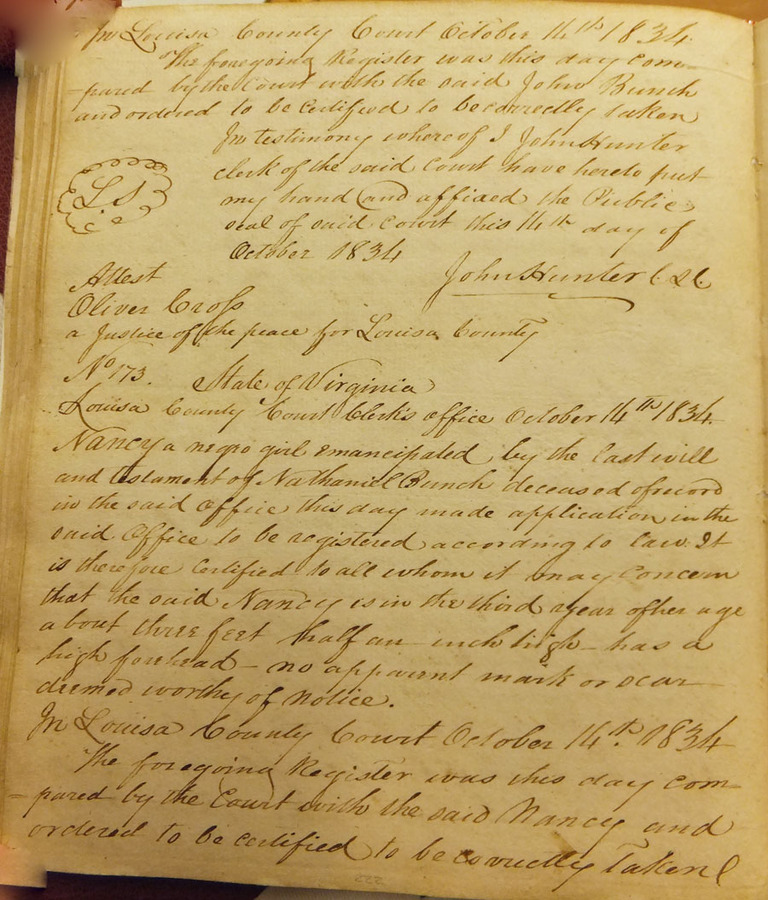 In Louisa County Court October 14th 1834
The foregoing Register was this day com-
-pared by the Court with the said John Bunch
and ordered to be Certified to be correctly taken
In testimony whereof I John Hunter
clerk of the said Court have hereto put
my hand and affixed the Public
seal of said Court this 14th day of
October 1834
LS
John Hunter C L C
Attest
Oliver Cross
a Justice of the peace for Louisa County
No 173. State of Virginia
Louisa County Court Clerk's office October 14th 1834.
Nancy a negro girl emancipated by the last will
and testament of Nathaniel Bunch deceased of record
in the said office this day made application in the
said Office to be registered according to law. It
is therefore Certified to all whom it may Concern
that the said Nancy is in the third year of her age
about three feet half an inch high - has a
high forehead - no apparent mark or scar
deemed worthy of notice.
In Louisa County Court October 14th. 1834
The foregoing Register was this day com-
-pared by the Court with the said Nancy and
ordered to be certified to be correctly Taken